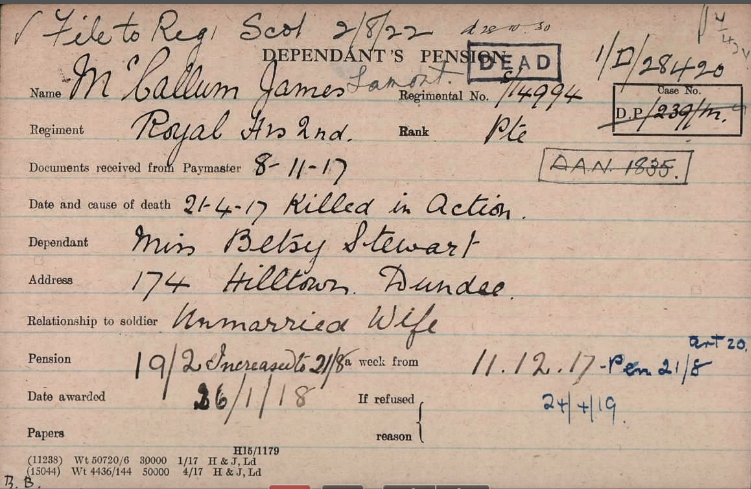 ✓ File to Reg. Scot 2/8/22
DEPENDANT'S PENSION DEAD 1/D/28420
Name McCallum James Lamont. Regimental No. S/14994 Case No.
D.P/239/M.
Regiment Royal Hrs 2nd. Rank Pte
Documents received from Paymaster 8-11-17 A.A.N. 1835.
Date and cause of death 21-4-17 Killed in Action.
Dependant Miss Betsy Stewart
Address 174 Hilltown. Dundee.
Relationship to soldier Unmarried Wife
Art 20.
Pension 19/2 Increased to 21/8 a week from 11.12.17 - Pen 21/8
Date awarded 26/1/18 If refused 24/4/19.
Papers reason
H15/1179
(11238) Wt 50720/6 30000 1/17 H & J, Ld
(15044) Wt 4436/144 50000 4/17 H & J, Ld
B.B.